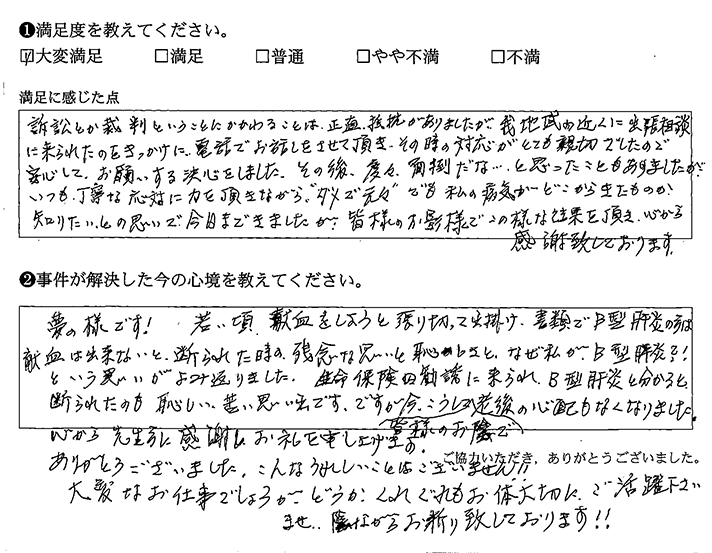 ❶満足度を教えてください。
☑大変満足 □満足 □普通 □やや不満 □不満
満足に感じた点
訴訟とか裁判ということにかかわることは、正直、抵抗がありましたが、我地域の近くに出張相談
に来られたのをきっかけに、電話でお話しをさせて頂き、その時の対応がとても親切でしたので
安心して、お願いする決心をしました。その後、度々、面倒だな…と思ったこともありましたが、
いつも丁寧な応対に力を頂きながら、"ダメで元々"でも私の病気がどこからきたものか、
知りたい、との思いで今日まできましたが、皆様のお影様でこの様な結果を頂き、心から
感謝致しております。
❷事件が解決した今の心境を教えてください。
夢の様です! 若い頃、献血をしようと張り切って出掛け、書類でB型肝炎の方は
献血は出来ないと、断られた時の残念な思いと恥しさと、なぜ私が、B型肝炎?!
という思いがよみ返りました。生命保険の勧誘に来られ、B型肝炎と分かると、
断られたのも恥しい、苦い思い出です。ですが今、こうして老後の心配もなくなりました。
皆様のお陰で
心から先生方に感謝しお礼を申し上げます。
ご協力いただき、ありがとうございました。
ありがとうございました。こんなうれしいことはございません!!
大変なお仕事でしょうが、どうか、くれぐれもお体大切に、ご活躍下さい
ませ.. 陰ながらお祈り致しております!!